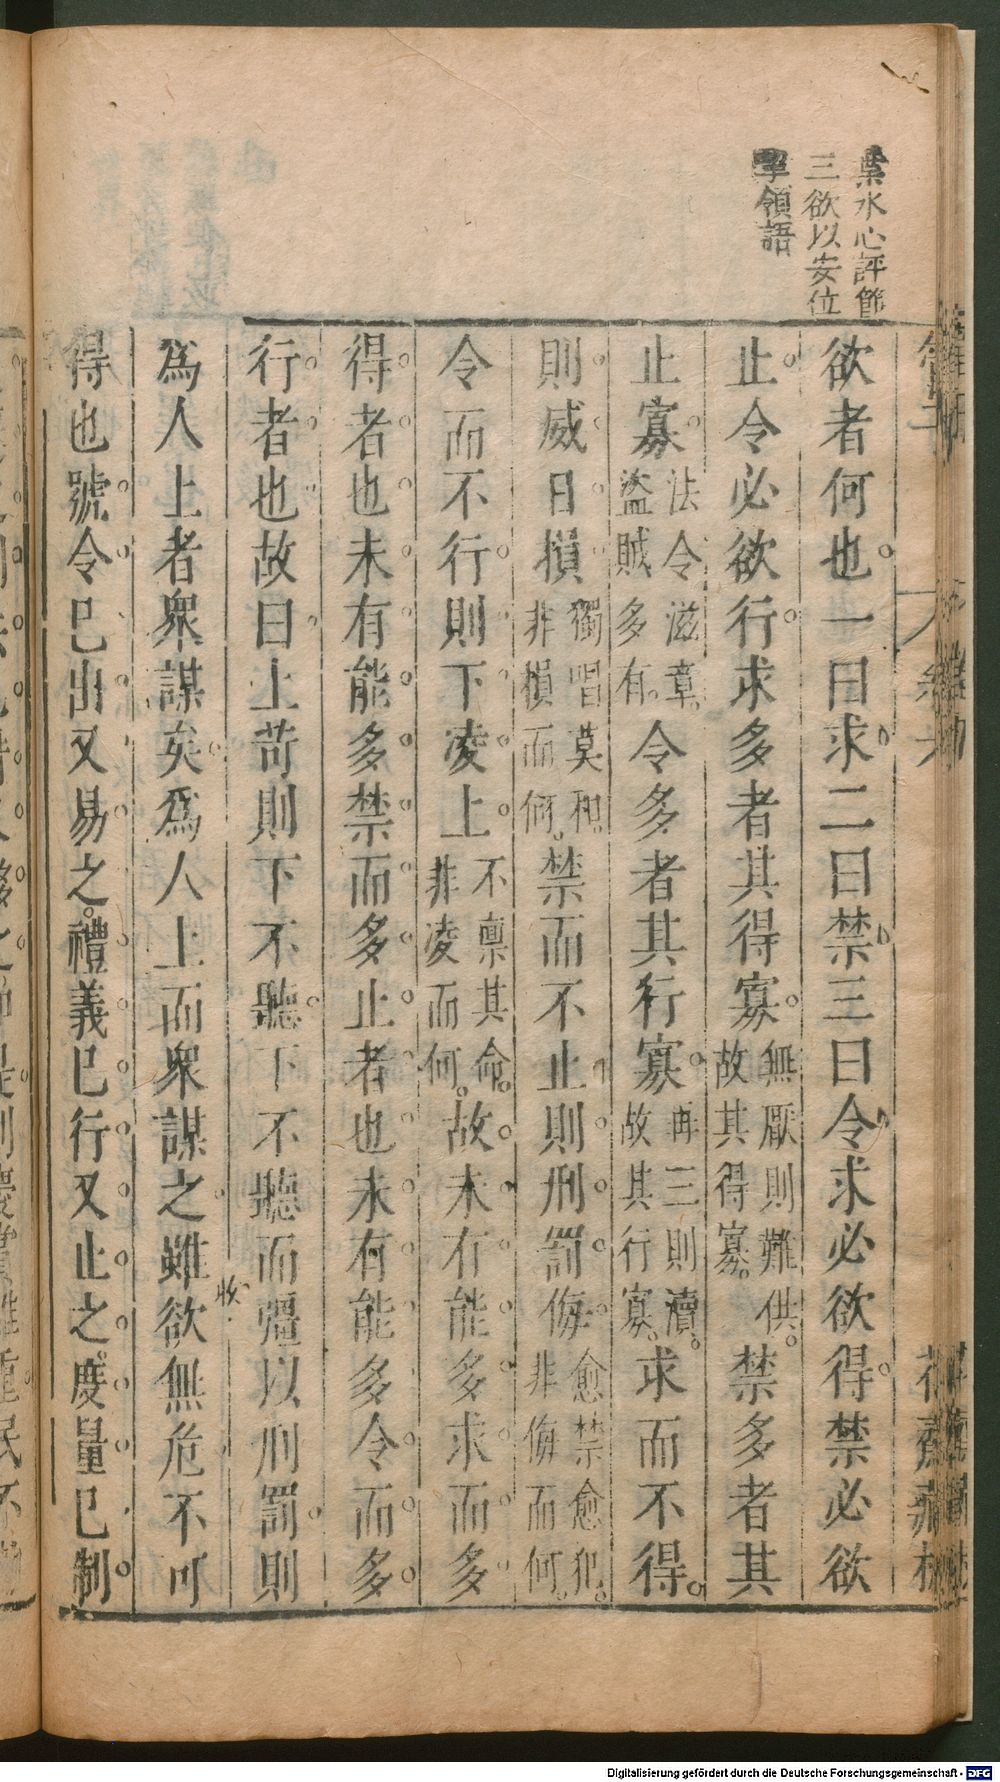 葉水心評節
三欲以安位
挈領語
管子
卷六
花齋藏板
欲者何也一曰求二曰禁三曰令求必欲得禁必欲
止令必欲行求多者其得寡無厭則難供。故其得寡。禁多者其
止寡法令滋章。盜賊多有。令多者其行寡再三則瀆。故其行寡。求而不得。
則威日損獨唱莫和。非損而何。禁而不止則刑罰侮愈禁愈犯。非侮而何。
令而不行則下凌上不稟其命。非凌而何。故未有能多求而多
得者也未有能多禁而多止者也未有能多令而多
行者也故曰上苛則下不聽下不聽而彊以刑罰則
為人上者衆謀矣爲人上而衆謀之雖欲無危不可
得也號令已出又易之。禮義已行又止之。度量已制
Digitalisierung gefördert durch die Deutsche Forschungsgemeinschaft - DFG